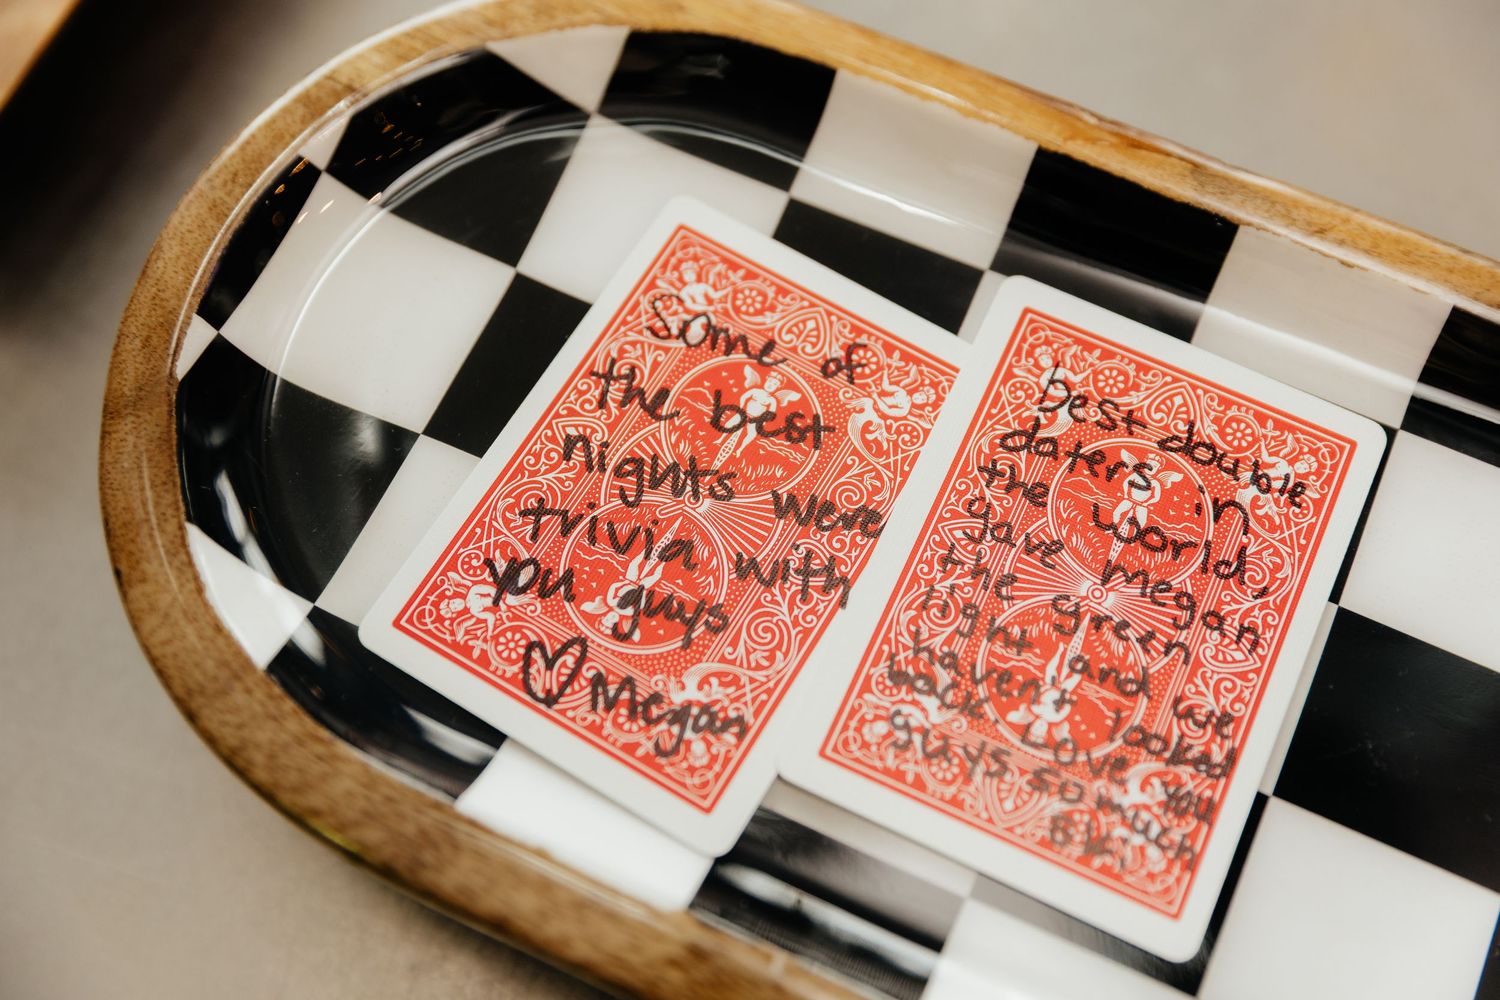 Some of
the best
nights were
trivia with
you guys
♡Megan
best double
daters in
the world,
gave Megan
the green
light and we
haven't looked
back Love you
guys so much